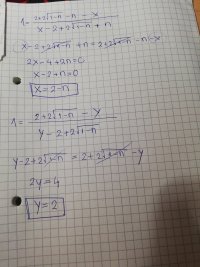 1 = (2+2√(1-n) - n - x)/(x-2+2√(1-n)+n)
x-2+2√(1-n)+n = 2+2√(1-n)-n-x
2x-4+2n=0
x-2+n=0
x=2-n
1 = (2+2√(1-n) - y)/(y-2+2√(1-n))
y-2+2√(1-n) = 2+2√(1-n) - y
2y=4
y=2